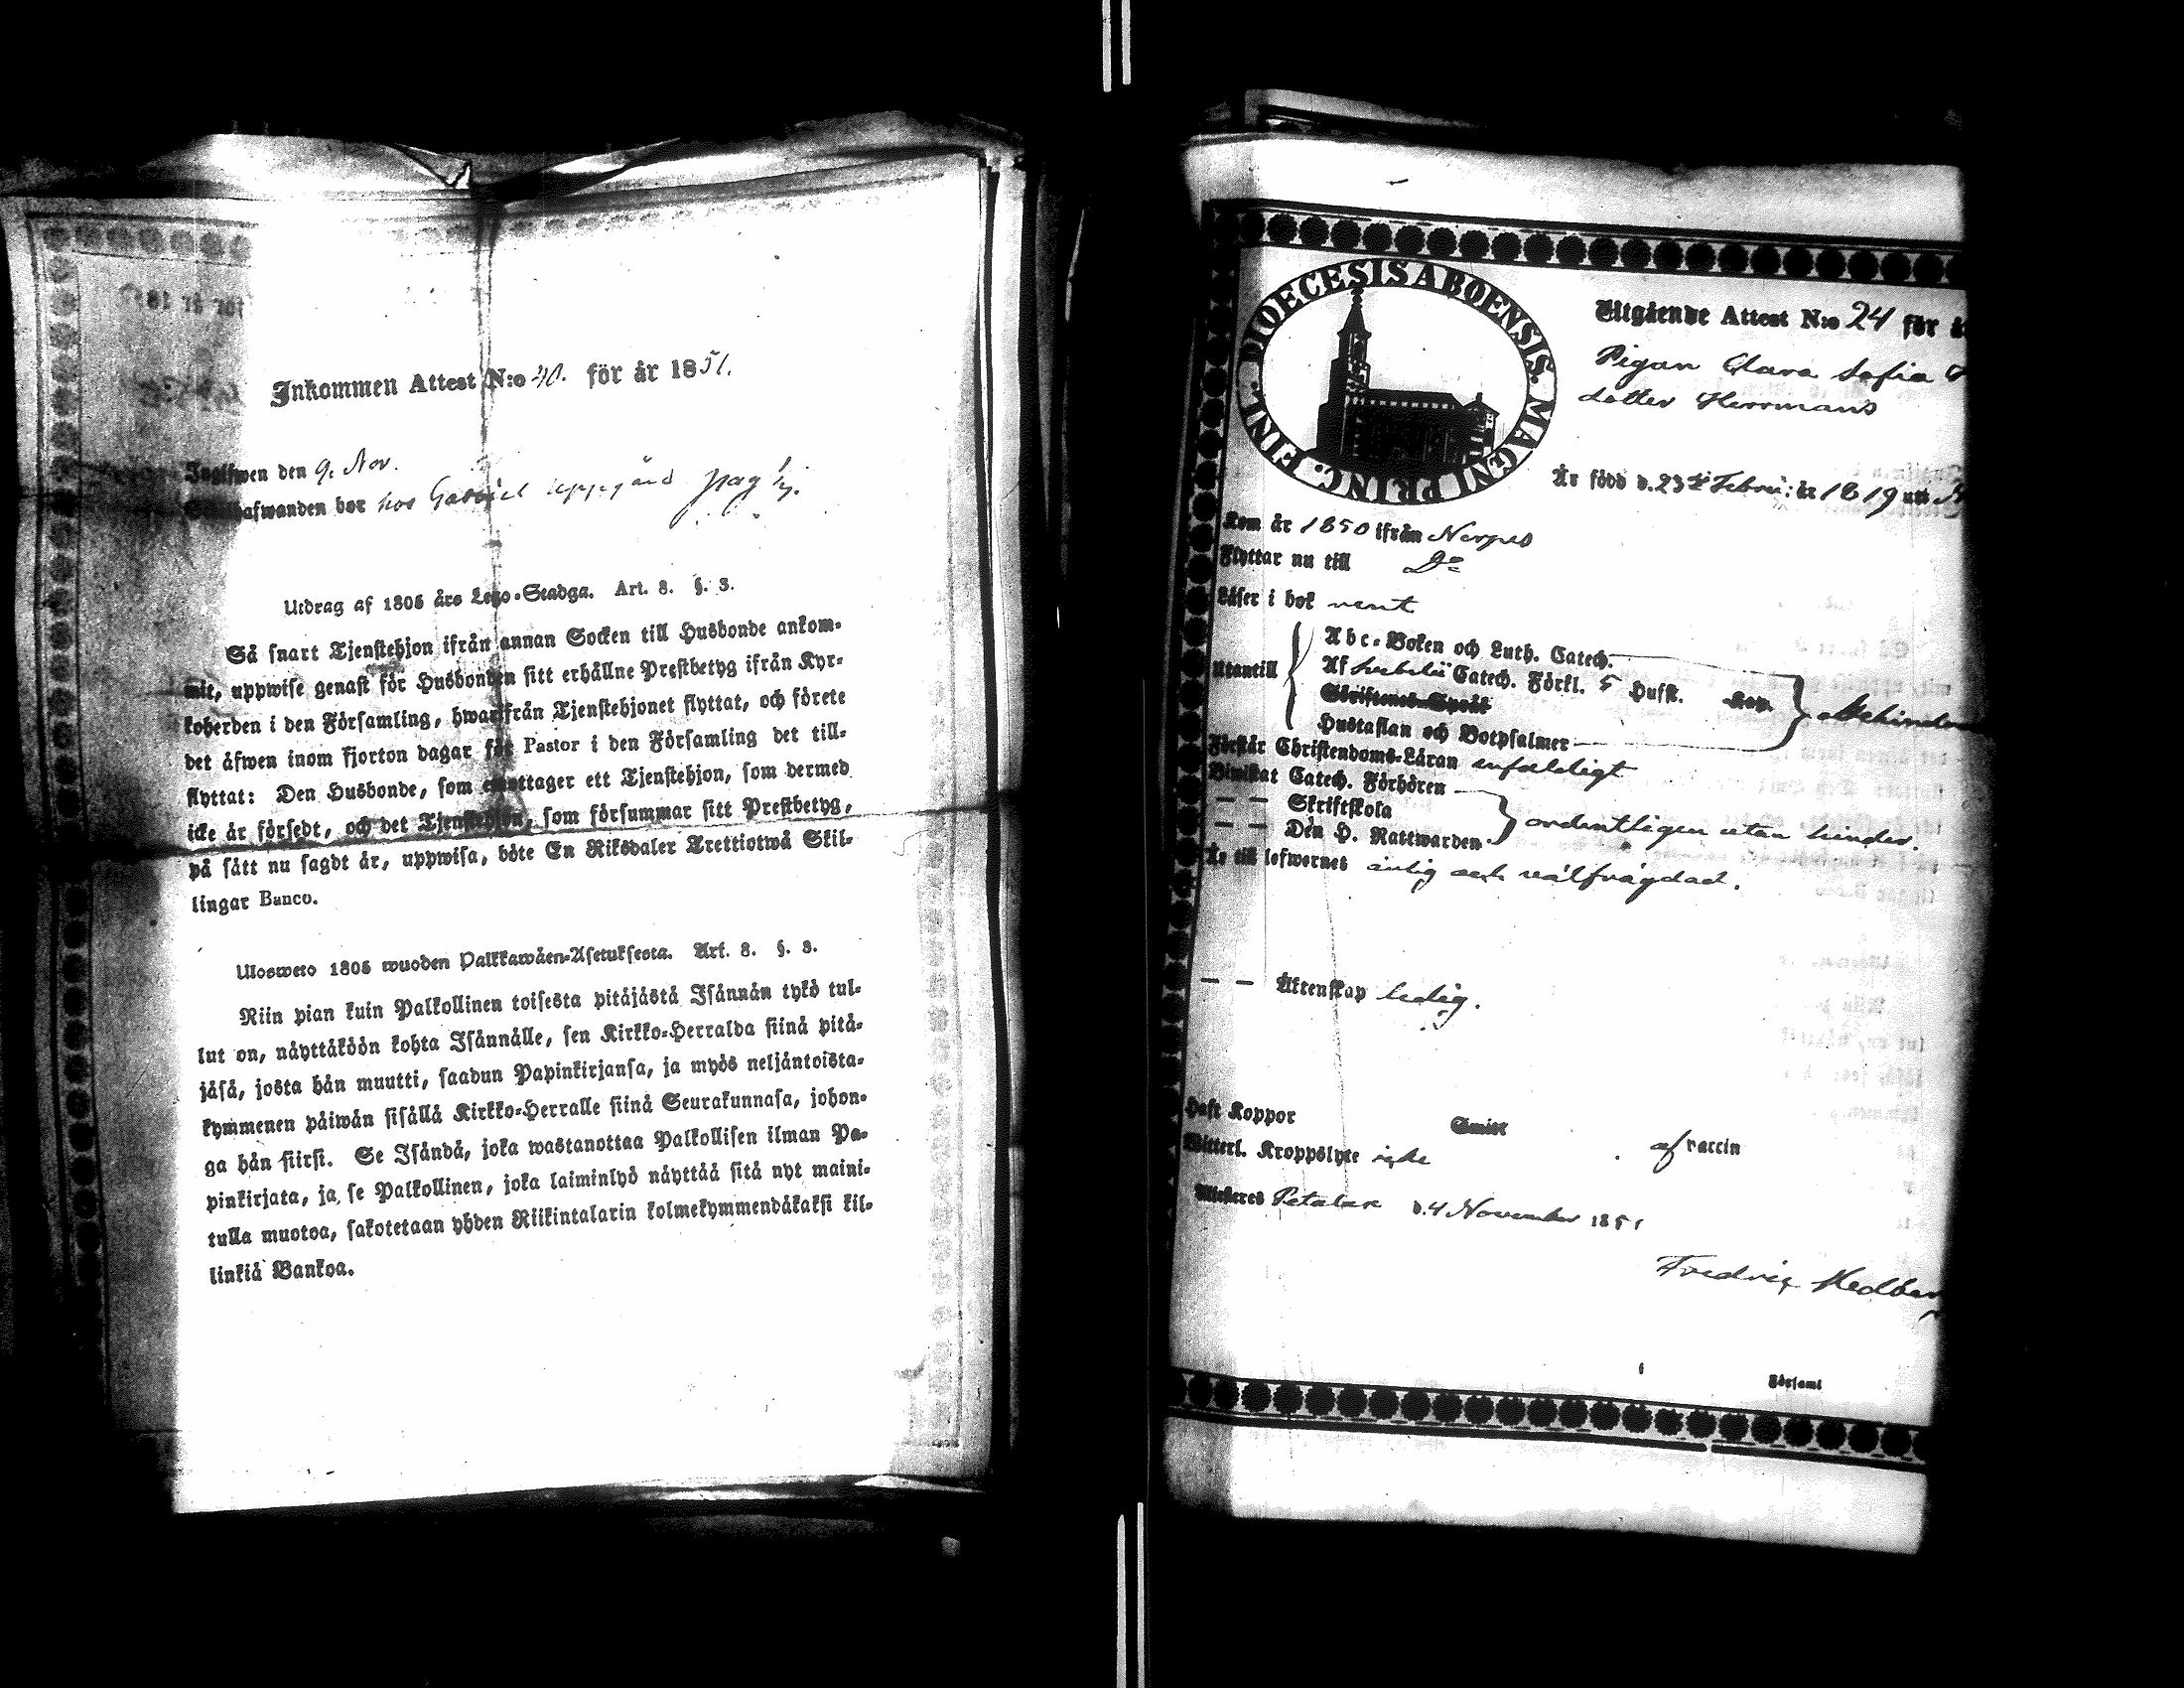 Inkommen Attest N:o 40. för år 1851.
Ingifwen den 9. Nov.
bor hos Gabriel Uppgård
Utdrag af 1805 års Lego-Stadga. Art. 8. §. 3.
Så snart Tjenstehjon ifrån annan Socken till Husbonde ankom-
mit, uppwise genast för Husbonden sitt erhållne Prestbetyg ifrån Kyr-
koherden i den Församling, hwarifrån Tjenstehjonet flyttat, och förete
det äfwen inom fjorton dagar för Pastor i den Församling det till-
flyttat: Den Husbonde, som emottager ett Tjenstehjon, som dermed
icke är försedt, och det Tjenstehjon, som försummar sitt Prestbetyg,
på sätt nu sagdt är, uppwisa, böte En Riksdaler Trettiotwå Skil-
lingar Banco.
Ulosweto 1805 wuoden Palkkawäen-Asetuksesta. Art. 8. §. 3.
Niin pian kuin Palkollinen toisesta pitäjästä Isännän tykö tul-
lut on, näyttäköön kohta Isännälle, sen Kirkko-Herralda siinä pitä-
jäsä, josta hän muutti, saadun Papinkirjansa, ja myös neljäntoista-
kymmenen päiwän sisällä Kirkko-Herralle siinä Seurakunnasa, johon-
ga hän siirsi. Se Isändä, joka wastanottaa Palkollisen ilman Pa-
pinkirjata, ja se Palkollinen, joka laiminlyö näyttää sitä nyt maini-
tulla muotoa, sakotetaan yhden Riikintalarin kolmekymmendäkaksi kil-
linkiä Bankoa.
FINL. DIOECESIS ABOENSIS. MAGNI PRINC.
Utgående Attest N:o 24 för
Pigan Clara Sofia
dotter Herrmans
Är född d. 23 Febru: år 1819 uti
Kom år 1850 ifrån Nerpes
Flyttar nu till Do
Läser i bok rent
Utantill
Abc-Boken och Luth. Catech.
Af Svebelii Catech. Förkl. 5 Hufst. Kap.
Skriftenes Språk
Hustaflan och Botpsalmer
Förstår Christendoms-Läran enfaldigt
Biwistat Catech. Förhören
— — Skriftskola
— — Den H. Nattwarden
ordentligen utan hinder.
Är till lefwernet ärlig och välfrägdad.
— — Äktenskap ledig.
Haft Koppor
Smitt af vaccin
Witterl. Kroppslyte icke
Attesteres Petalax d. 4 November 1851
Fredric Hedberg
Församl